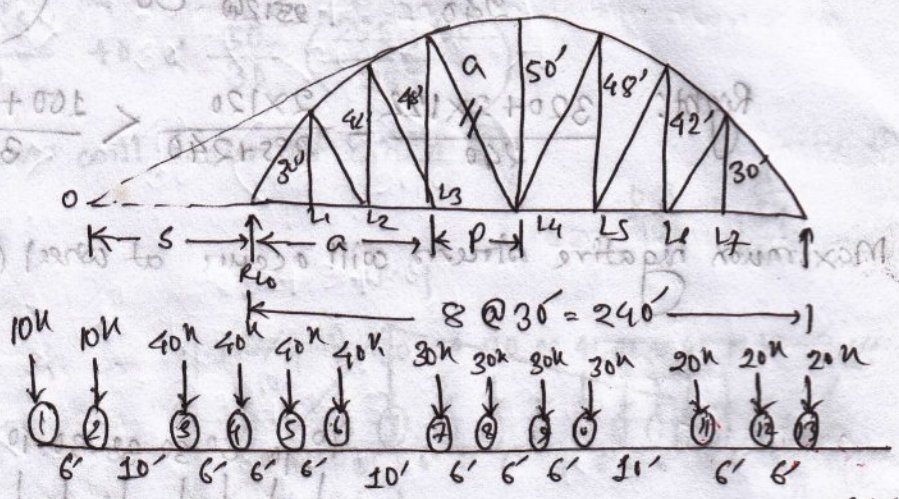 a 50' 48' 48' 42' 42' 30' 30'
O L1 L2 L3 L4 L5 L6 L7
S a P
RL0
8 @ 30' = 240'
10k 10k 40k 40k 40k 40k 30k 30k 30k 30k 20k 20k 20k
1 2 3 4 5 6 7 8 9 10 11 12 13
6' 10' 6' 6' 6' 10' 6' 6' 6' 10' 6' 6'